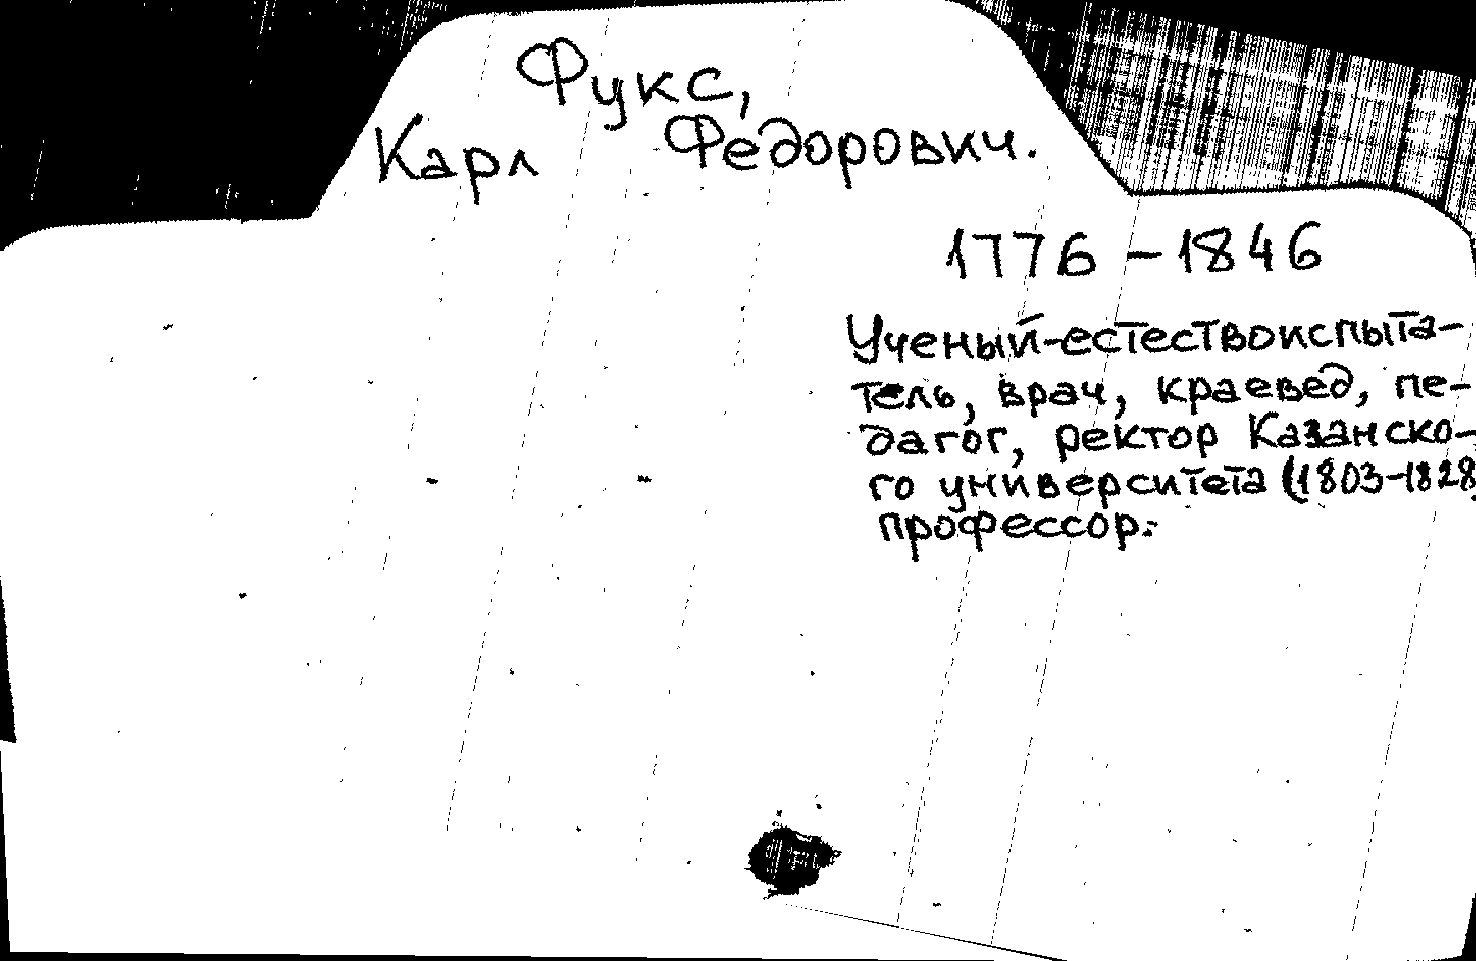 Фукс,
Карл Федорович.
1776-1846
Ученый-естествоиспыта-
тель, врач, краевед, пе-
дагог, ректор Казанско-
го университета (1803-1828
профессор.